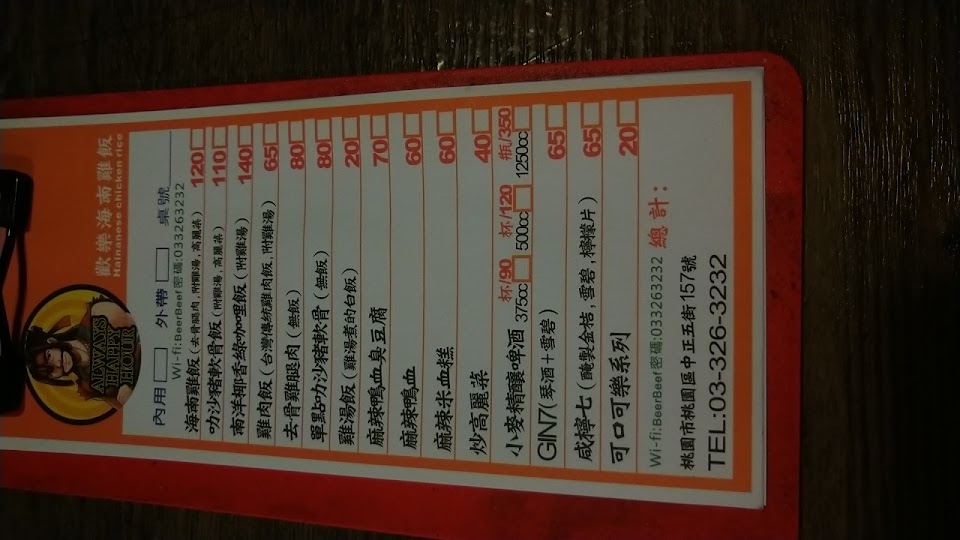 ALWAYS
HAPPY
HOUR
歡樂海南雞飯
Hainanese chicken rice
內用□ 外帶□ 桌號
Wi-fi:BeerBeef密碼:033263232
海南雞飯(去骨腿肉,附雞湯,高麗菜) 120□
叻沙豬軟骨飯(附雞湯,高麗菜) 110□
南洋椰香綠咖哩飯(附雞湯) 140□
雞肉飯(台灣傳統雞肉飯,附雞湯) 65□
去骨雞腿肉(無飯) 80□
單點叻沙豬軟骨(無飯) 80□
雞湯飯(雞湯煮的白飯) 20□
麻辣鴨血臭豆腐 70□
麻辣鴨血 60□
麻辣米血糕 60□
炒高麗菜 40□
小麥精釀啤酒 杯/90 375cc□ 杯/120 500cc□ 瓶/350 1250cc□
GIN7(琴酒+雪碧) 65□
咸檸七(醃製金桔,雪碧,檸檬片) 65□
可口可樂系列 20□
Wi-fi:BeerBeef密碼:033263232 總計:
桃園市桃園區中正五街157號
TEL:03-326-3232